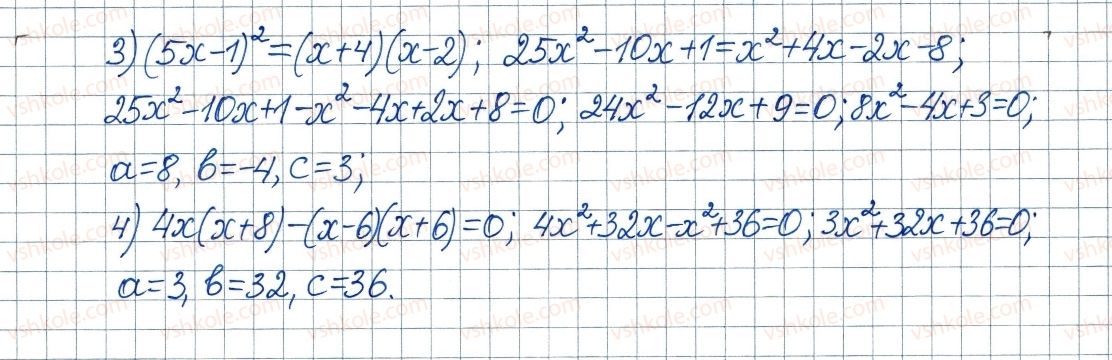 3) (5x-1)²=(x+4)(x-2); 25x²-10x+1=x²+4x-2x-8;
25x²-10x+1-x²-4x+2x+8=0; 24x²-12x+9=0; 8x²-4x+3=0;
a=8, b=-4, c=3;
4) 4x(x+8)-(x-6)(x+6)=0; 4x²+32x-x²+36=0; 3x²+32x+36=0;
a=3, b=32, c=36.